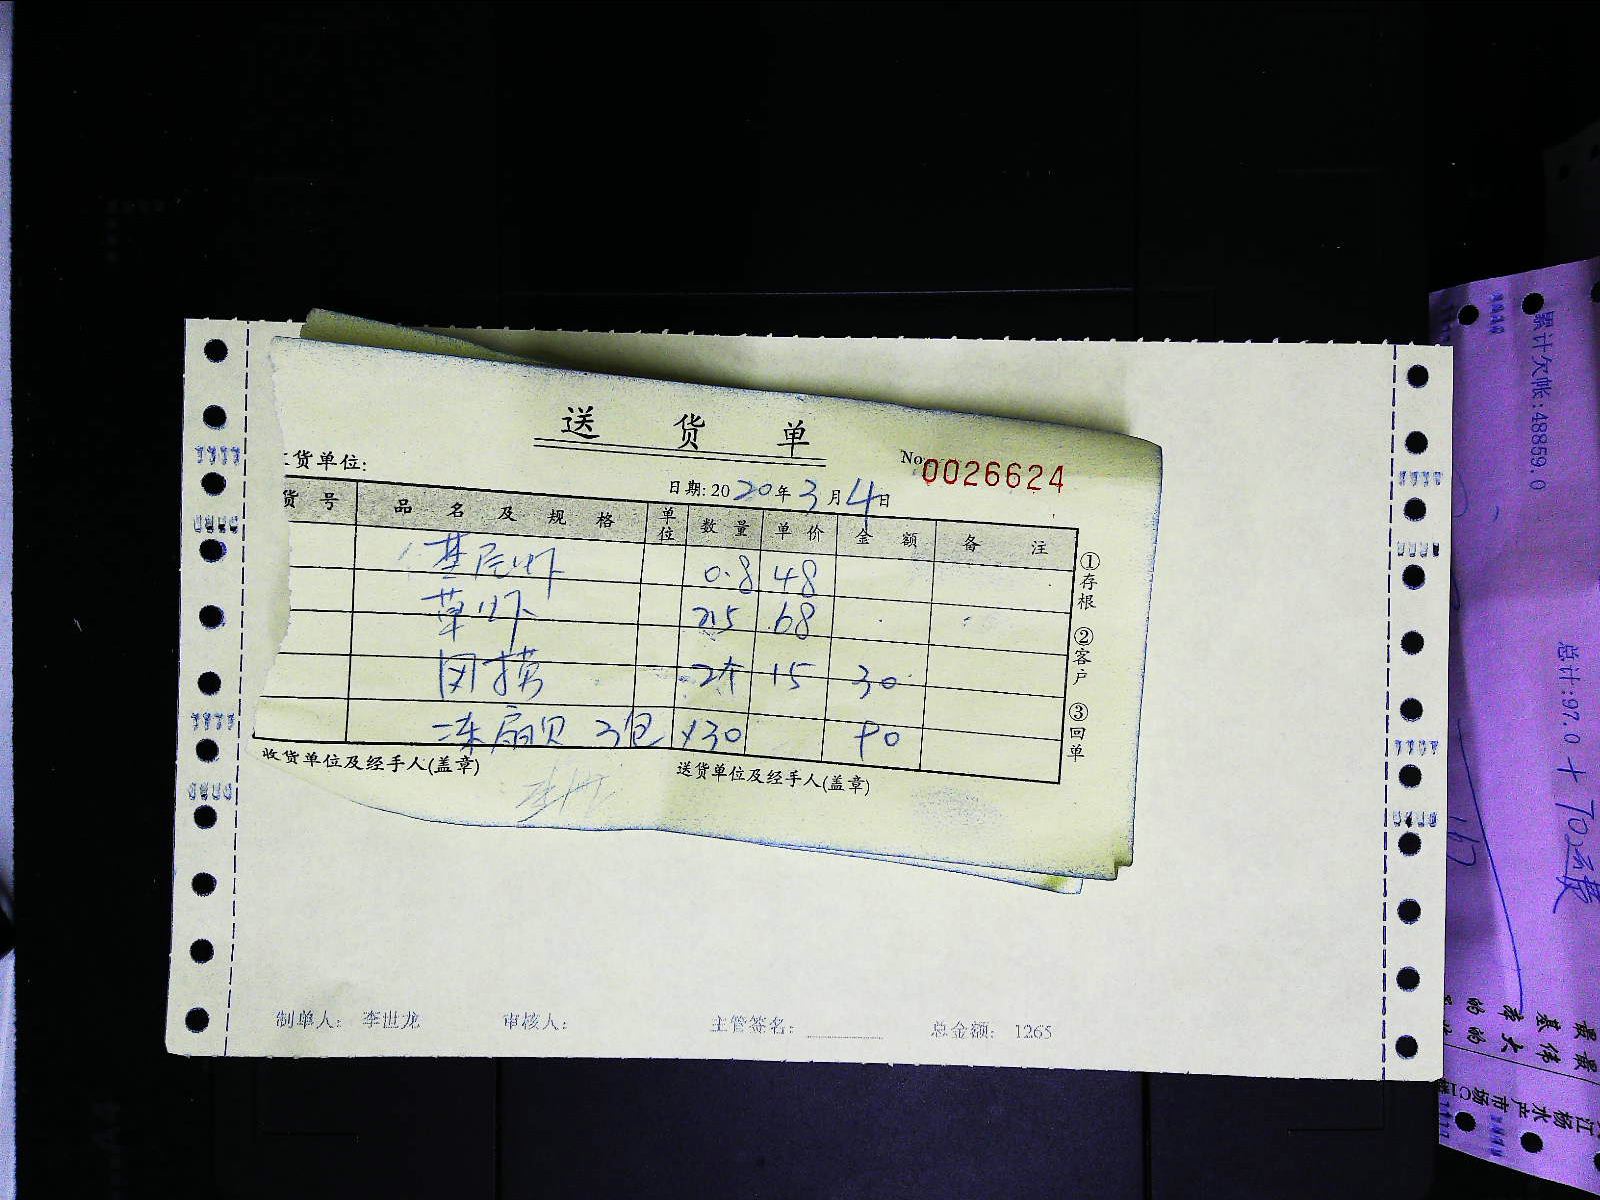 送 货 单
货单位:
No 0026624
日期: 2020年3月4日
货 号 品 名 及 规 格 单位 数 量 单 价 金 额 备 注
基尾虾 0.8 48
草虾 68
2 15 30
冻扇贝 3包 ×30 90
①存根 ②客户 ③回单
收货单位及经手人(盖章) 送货单位及经手人(盖章)
制单人: 李世龙 审核人: 主管签名: 总金额: 1265
累计欠帐:48859.0
总计:97.0 +
江杨水产市场